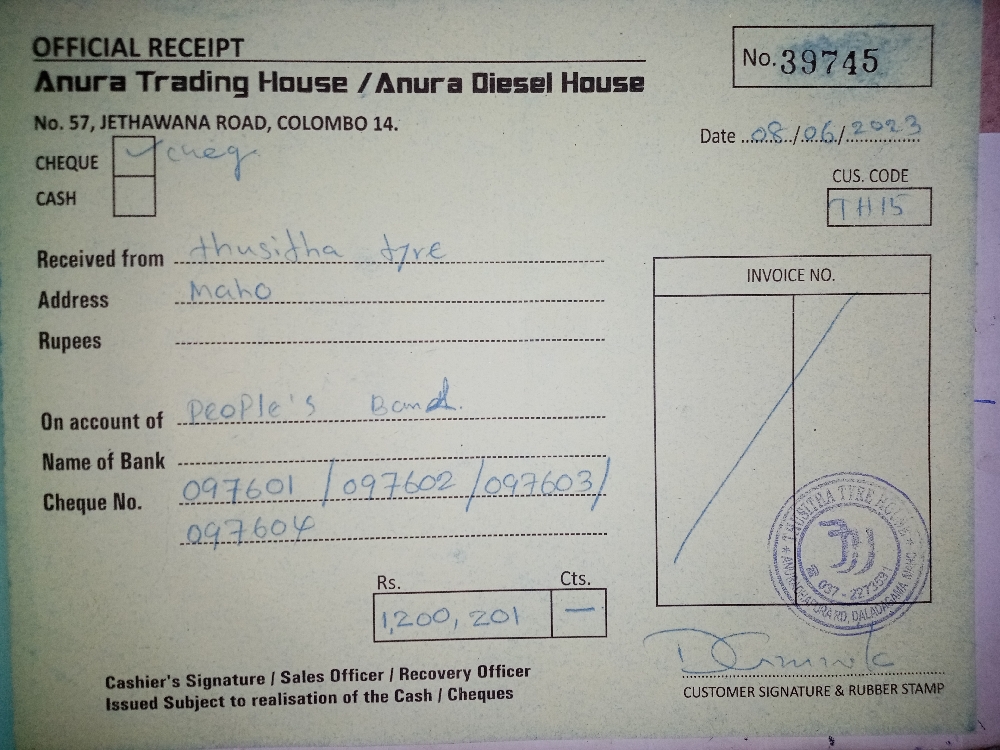 OFFICIAL RECEIPT
No. 39745
Anura Trading House / Anura Diesel House
No. 57, JETHAWANA ROAD, COLOMBO 14.
Date 08/06/2023
CHEQUE cheq
CASH
CUS. CODE
TH15
Received from thusitha tyre
Address Maho
Rupees
INVOICE NO.
On account of People's Band.
Name of Bank
Cheque No. 097601 / 097602 / 097603 /
097604
THUSITHA TYRE HOUSE
037 - 2273591
ANURADHAPURA RD, DALADAGAMA, MAHO
Rs. Cts.
1,200,201 —
Cashier's Signature / Sales Officer / Recovery Officer
Issued Subject to realisation of the Cash / Cheques
CUSTOMER SIGNATURE & RUBBER STAMP